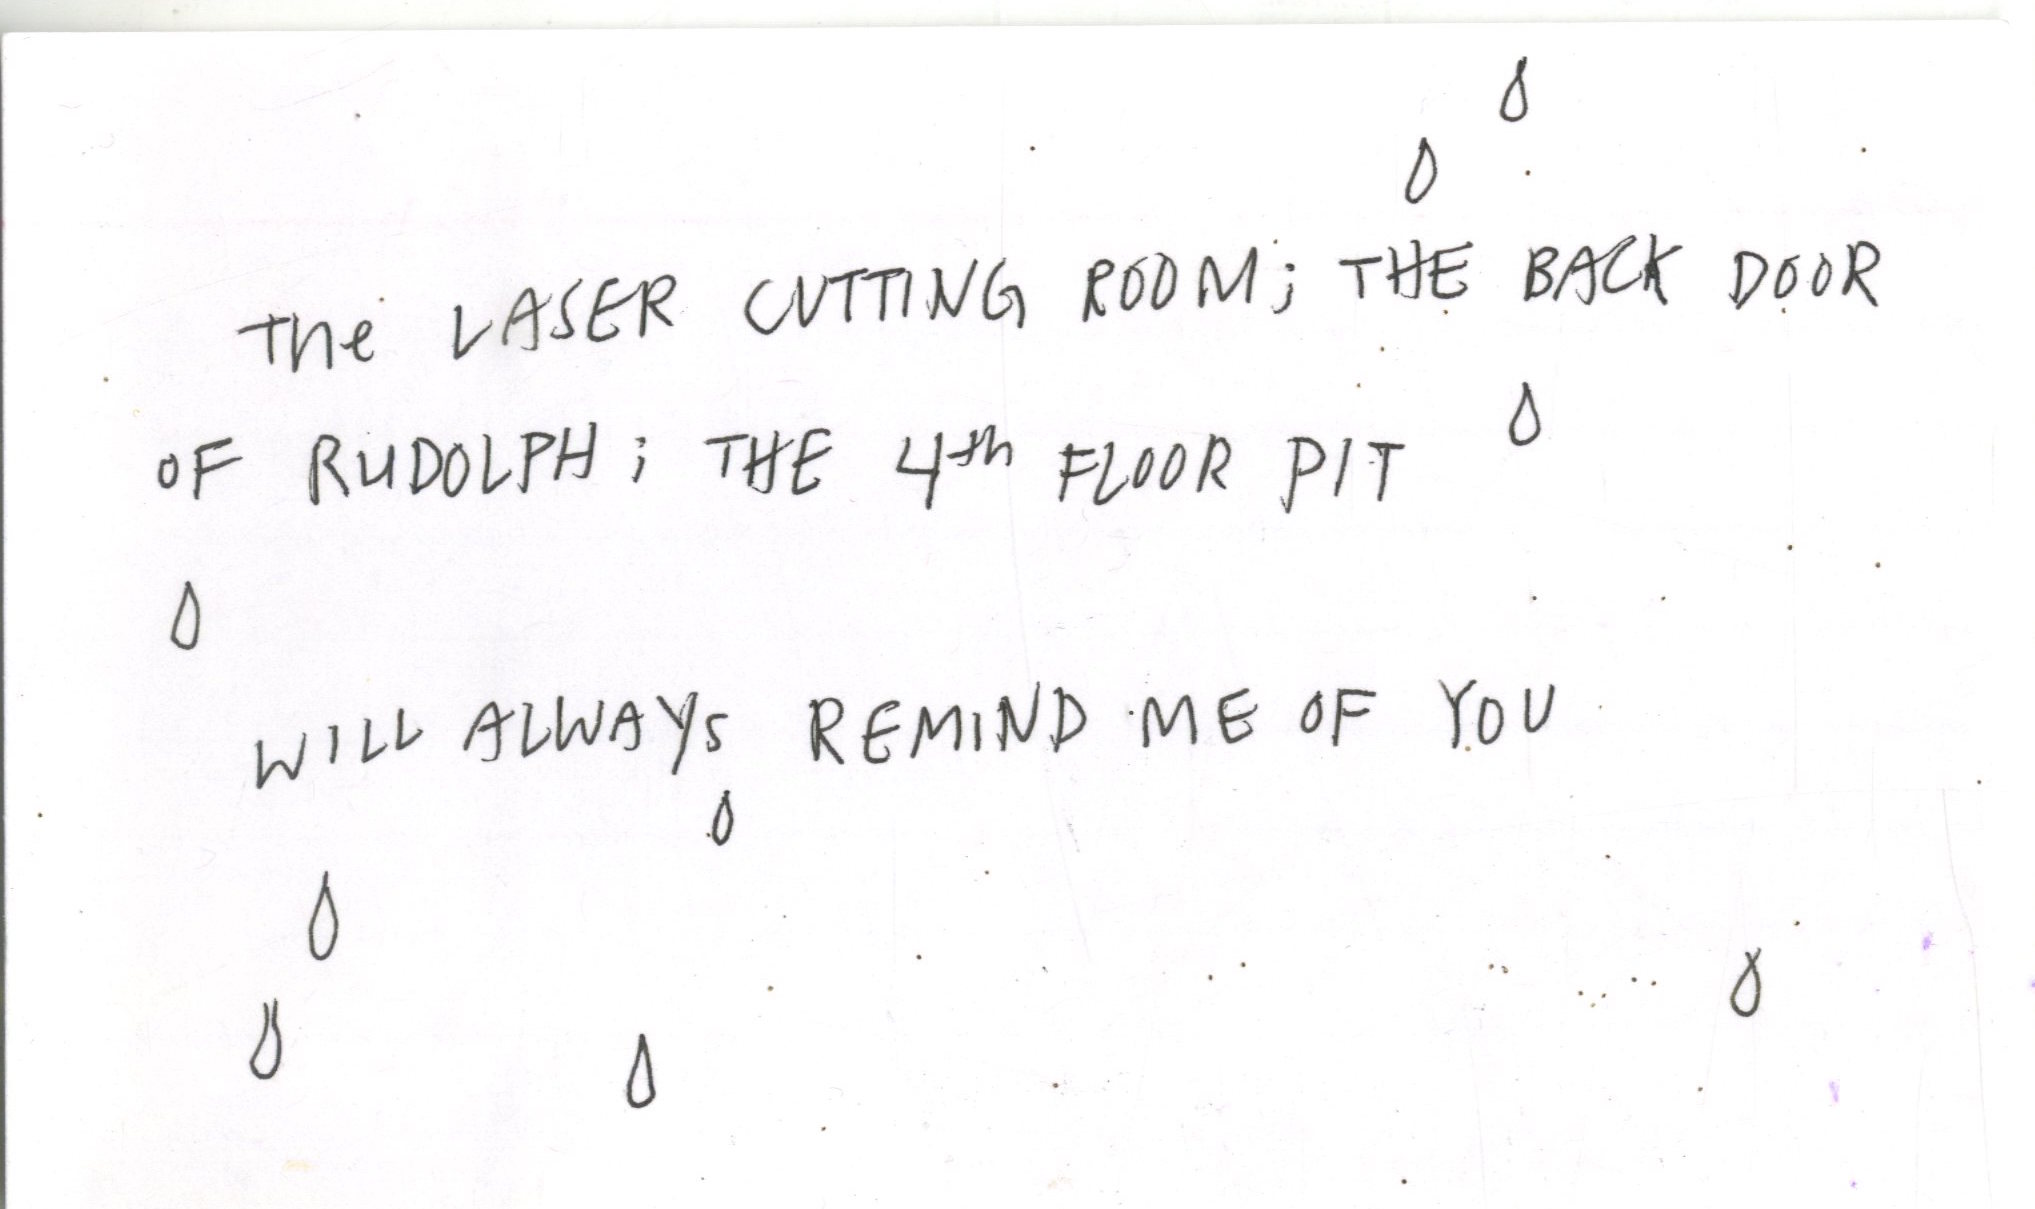 The LASER CUTTING ROOM; THE BACK DOOR
OF RUDOLPH; THE 4th FLOOR PIT
WILL ALWAYS REMIND ME OF YOU